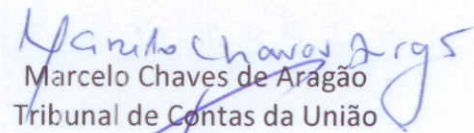 Marcelo Chaves Arag
Marcelo Chaves de Aragão
Tribunal de Contas da União